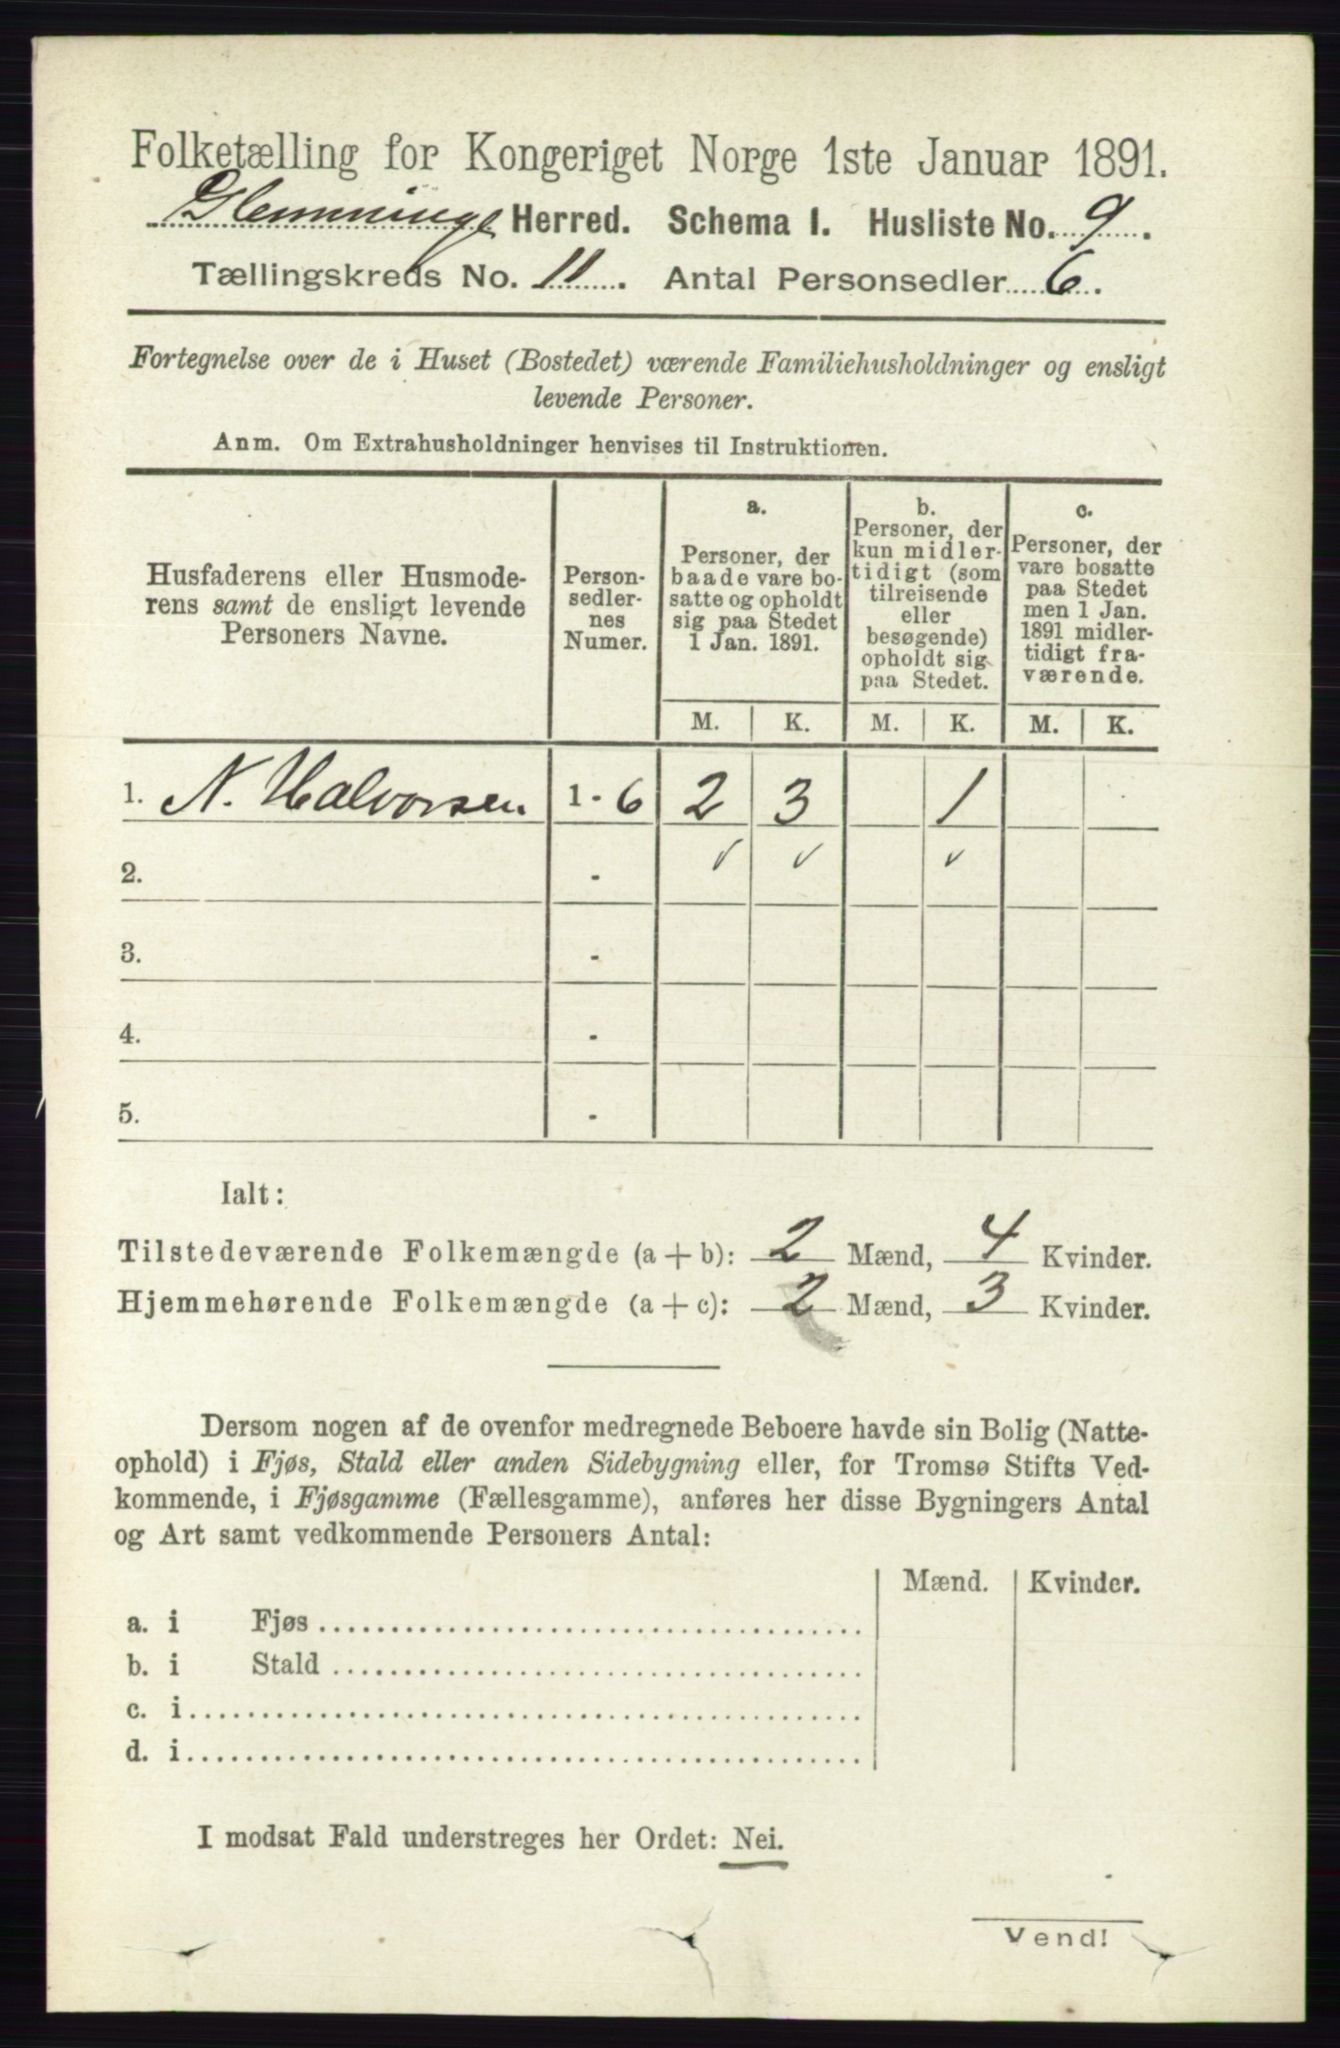 Folketælling for Kongeriget Norge 1ste Januar 1891.
Glemminge Herred. Schema I. Husliste No. 9.
Tællingskreds No. 11. Antal Personsedler 6.
Fortegnelse over de i Huset (Bostedet) værende Familiehusholdninger og ensligt
levende Personer.
Anm. Om Extrahusholdninger henvises til Instruktionen.
Husfaderens eller Husmode-
rens samt de ensligt levende
Personers Navne.
Person-
sedler-
nes
Numer.
a.
Personer, der
baade vare bo-
satte og opholdt
sig paa Stedet
1 Jan. 1891.
b.
Personer, der
kun midler-
tidigt (som
tilreisende
eller
besøgende)
opholdt sig
paa Stedet.
c.
Personer, der
vare bosatte
paa Stedet
men 1 Jan.
1891 midler-
tidigt fra-
værende.
M. K. M. K. M. K.
1. N. Halvorsen 1 - 6 2 3 1
2. - v v v
3. -
4. -
5. -
Ialt:
Tilstedeværende Folkemængde (a + b): 2 Mænd, 4 Kvinder.
Hjemmehørende Folkemængde (a + c): 2 Mænd, 3 Kvinder.
Dersom nogen af de ovenfor medregnede Beboere havde sin Bolig (Natte-
ophold) i Fjøs, Stald eller anden Sidebygning eller, for Tromsø Stifts Ved-
kommende, i Fjøsgamme (Fællesgamme), anføres her disse Bygningers Antal
og Art samt vedkommende Personers Antal:
Mænd. Kvinder.
a. i Fjøs
b. i Stald
c. i
d. i
I modsat Fald understreges her Ordet: Nei.
Vend!